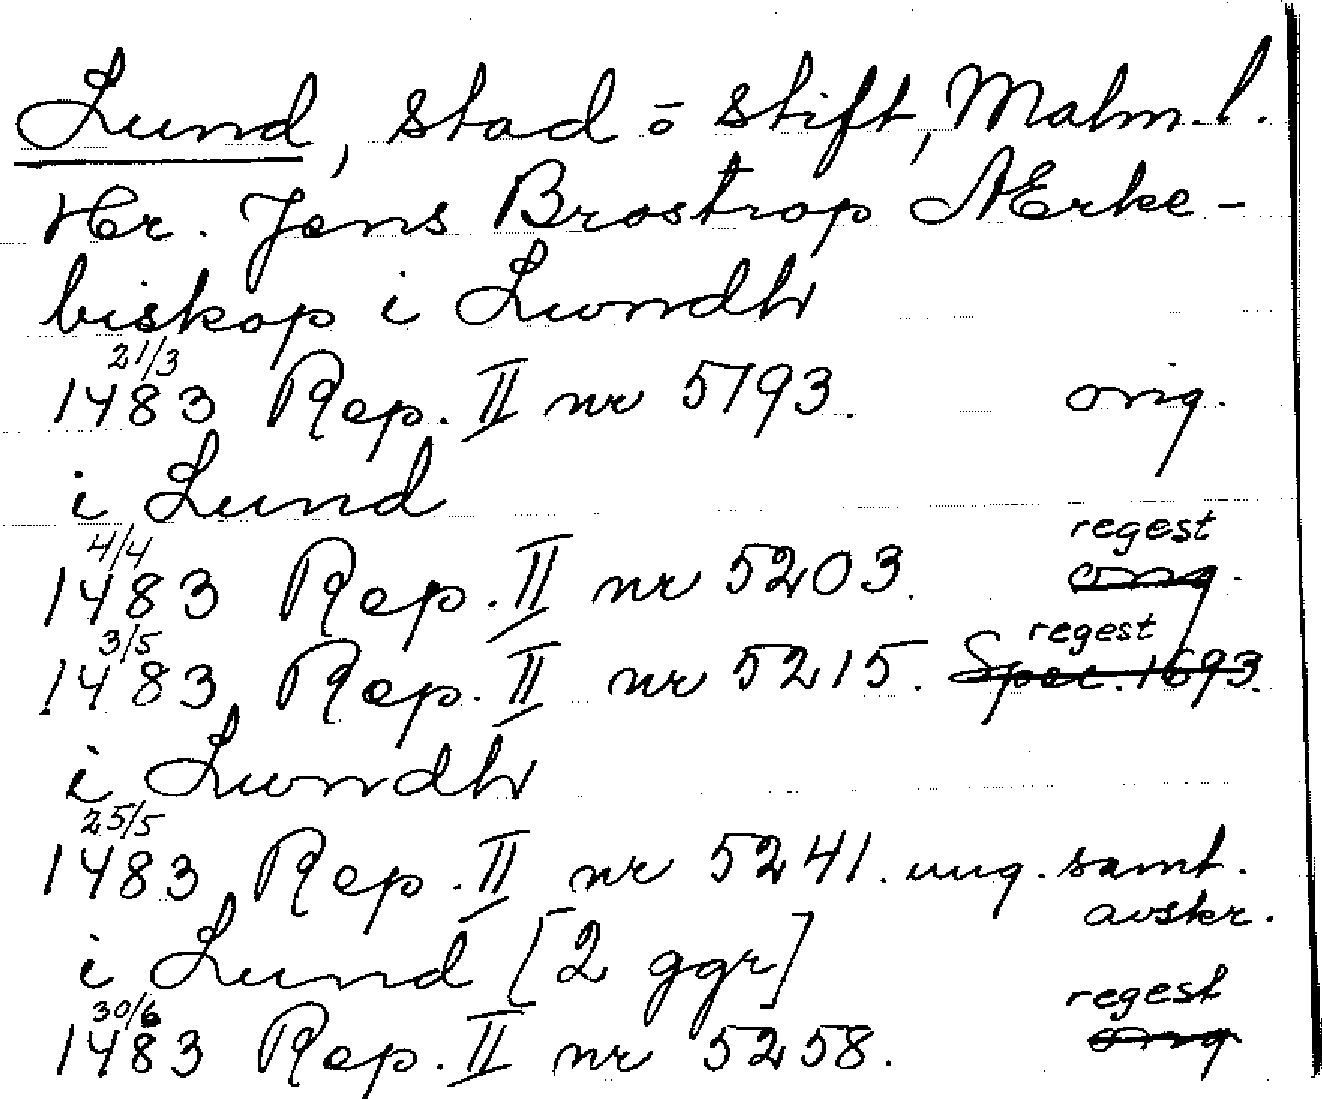 Lund, stad o stift, Malm. l.
Hr. Jens Brostrop AErke-
biskop i Lwndh
21/3
1483 Rep. II nr 5193. orig.
i Lund
4/4 regest
1483 Rep. II nr 5203. orig.
3/5 regest
1483 Rep. II nr 5215. Spec. 1693.
i Lwndh
25/5
1483 Rep. II nr 5241. ung. samt.
avskr.
i Lund [2 ggr]
30/6 regest
1483 Rep. II nr 5258. orig